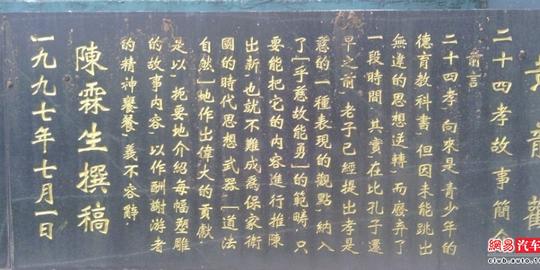 黃龍觀
二十四孝故事簡介
前言
二十四孝向來是青少年的
德育教科書但因未能跳出
無違的思想逆轉而廢弃了
一段時間其實在比孔子還
早之前老子已經提出孝是
慈的一種表現的觀點納入
了「乎慈故能勇」的範疇只
要能把它的內容進行推陳
出新也就不難成為保家衛
國的時代思想武器「道法
自然」地作出偉大的貢獻
是以扼要地介紹每幅塑雕
的故事內容以作酬謝游者
的精神饗餐義不容辭
陳霖生撰稿
一九九七年七月一日
網易汽车
club.auto.163.com